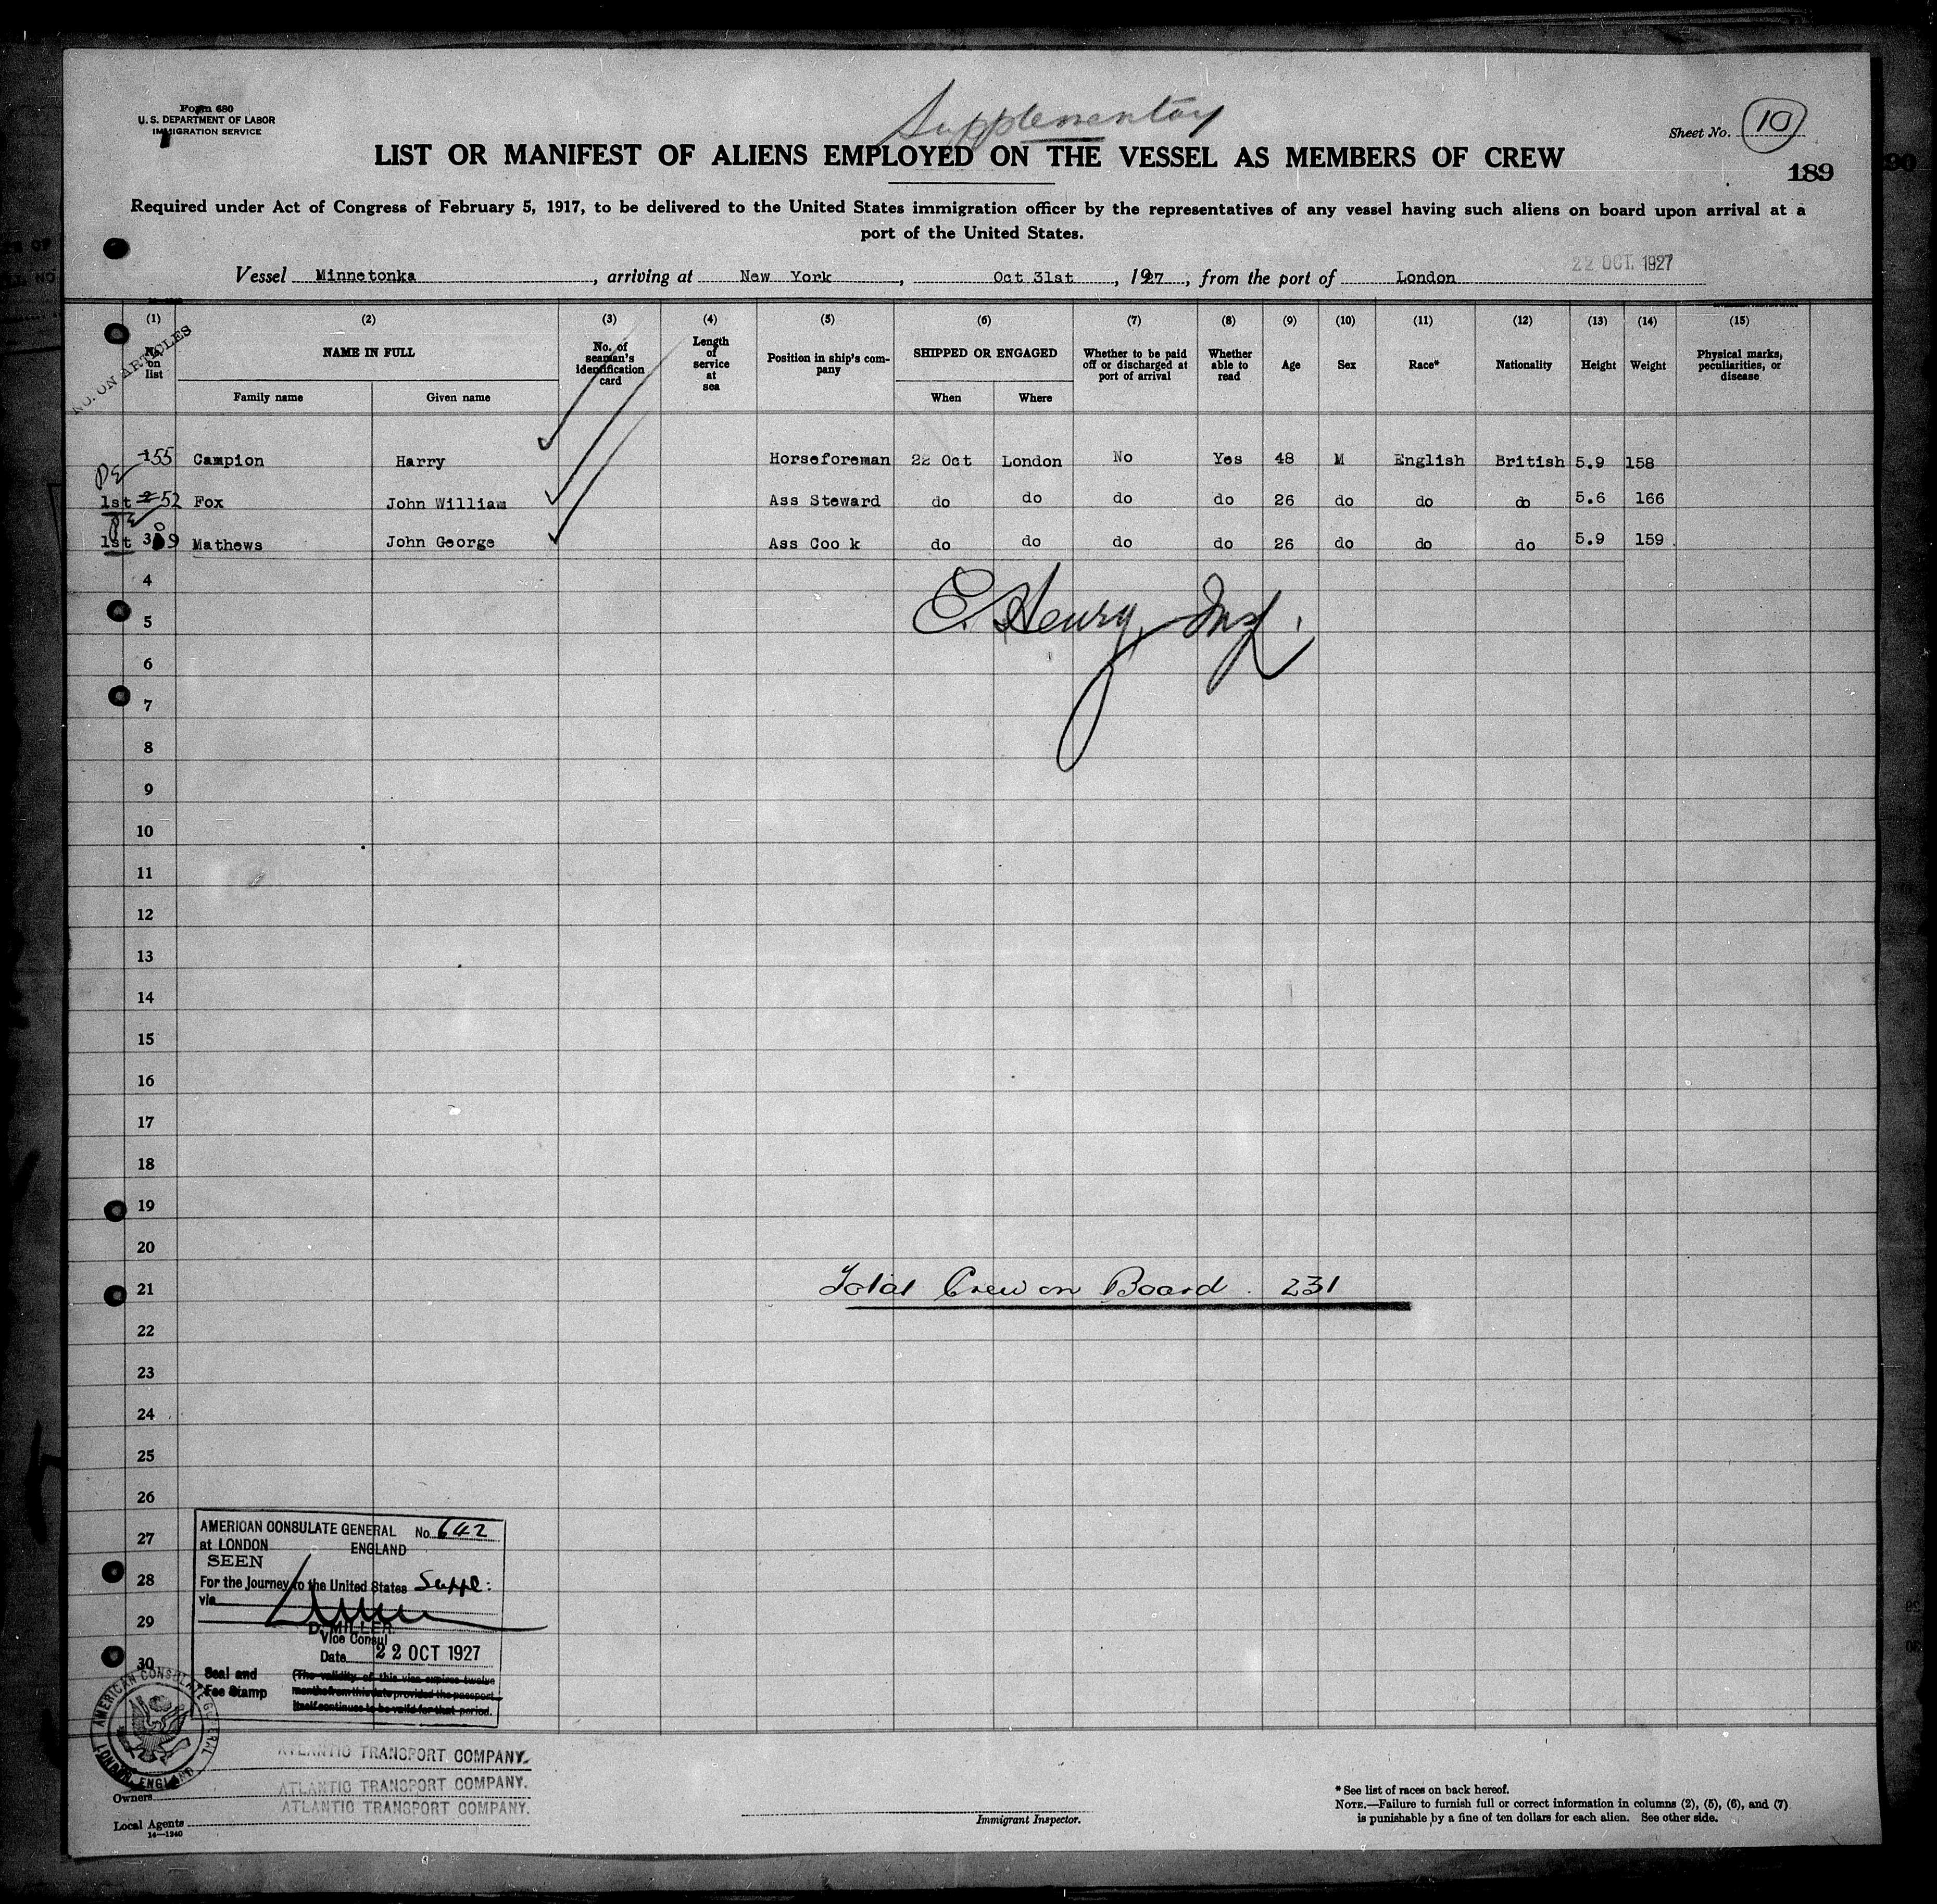 Form 680
U. S. DEPARTMENT OF LABOR
IMMIGRATION SERVICE
Supplementary
Sheet No. 10
LIST OR MANIFEST OF ALIENS EMPLOYED ON THE VESSEL AS MEMBERS OF CREW
189
Required under Act of Congress of February 5, 1917, to be delivered to the United States immigration officer by the representatives of any vessel having such aliens on board upon arrival at a
port of the United States.
22 OCT. 1927
Vessel Minnetonka, arriving at New York, Oct 31st, 1927, from the port of London
(1) (2) (3) (4) (5) (6) (7) (8) (9) (10) (11) (12) (13) (14) (15)
NO. ON ARTICLES
No. on list
NAME IN FULL
Family name
Given name
No. of seaman's identification card
Length of service at sea
Position in ship's company
SHIPPED OR ENGAGED
When
Where
Whether to be paid off or discharged at port of arrival
Whether able to read
Age
Sex
Race*
Nationality
Height
Weight
Physical marks, peculiarities, or disease
155 Campion Harry Horseforeman 22 Oct London No Yes 48 M English British 5.9 158
1st 2 52 Fox John William Ass Steward do do do do 26 do do do 5.6 166
1st 3 Mathews John George Ass Cook do do do do 26 do do do 5.9 159
4
E. Henry, Insp.
5
6
7
8
9
10
11
12
13
14
15
16
17
18
19
20
21 Total Crew on Board. 231
22
23
24
25
26
27
28
29
30
AMERICAN CONSULATE GENERAL No. 642
at LONDON ENGLAND
SEEN
For the Journey to the United States Suppl:
via
D. MILLER.
Vice Consul
Date 22 OCT 1927
Seal and
Fee Stamp
(The validity of this visa expires twelve
months from this date provided the passport
itself continues to be valid for that period.
AMERICAN CONSULATE GENERAL LONDON, ENGLAND
ATLANTIC TRANSPORT COMPANY.
ATLANTIC TRANSPORT COMPANY.
Owners
ATLANTIC TRANSPORT COMPANY.
Local Agents
14—1240
Immigrant Inspector.
* See list of races on back hereof.
NOTE.—Failure to furnish full or correct information in columns (2), (5), (6), and (7)
is punishable by a fine of ten dollars for each alien. See other side.